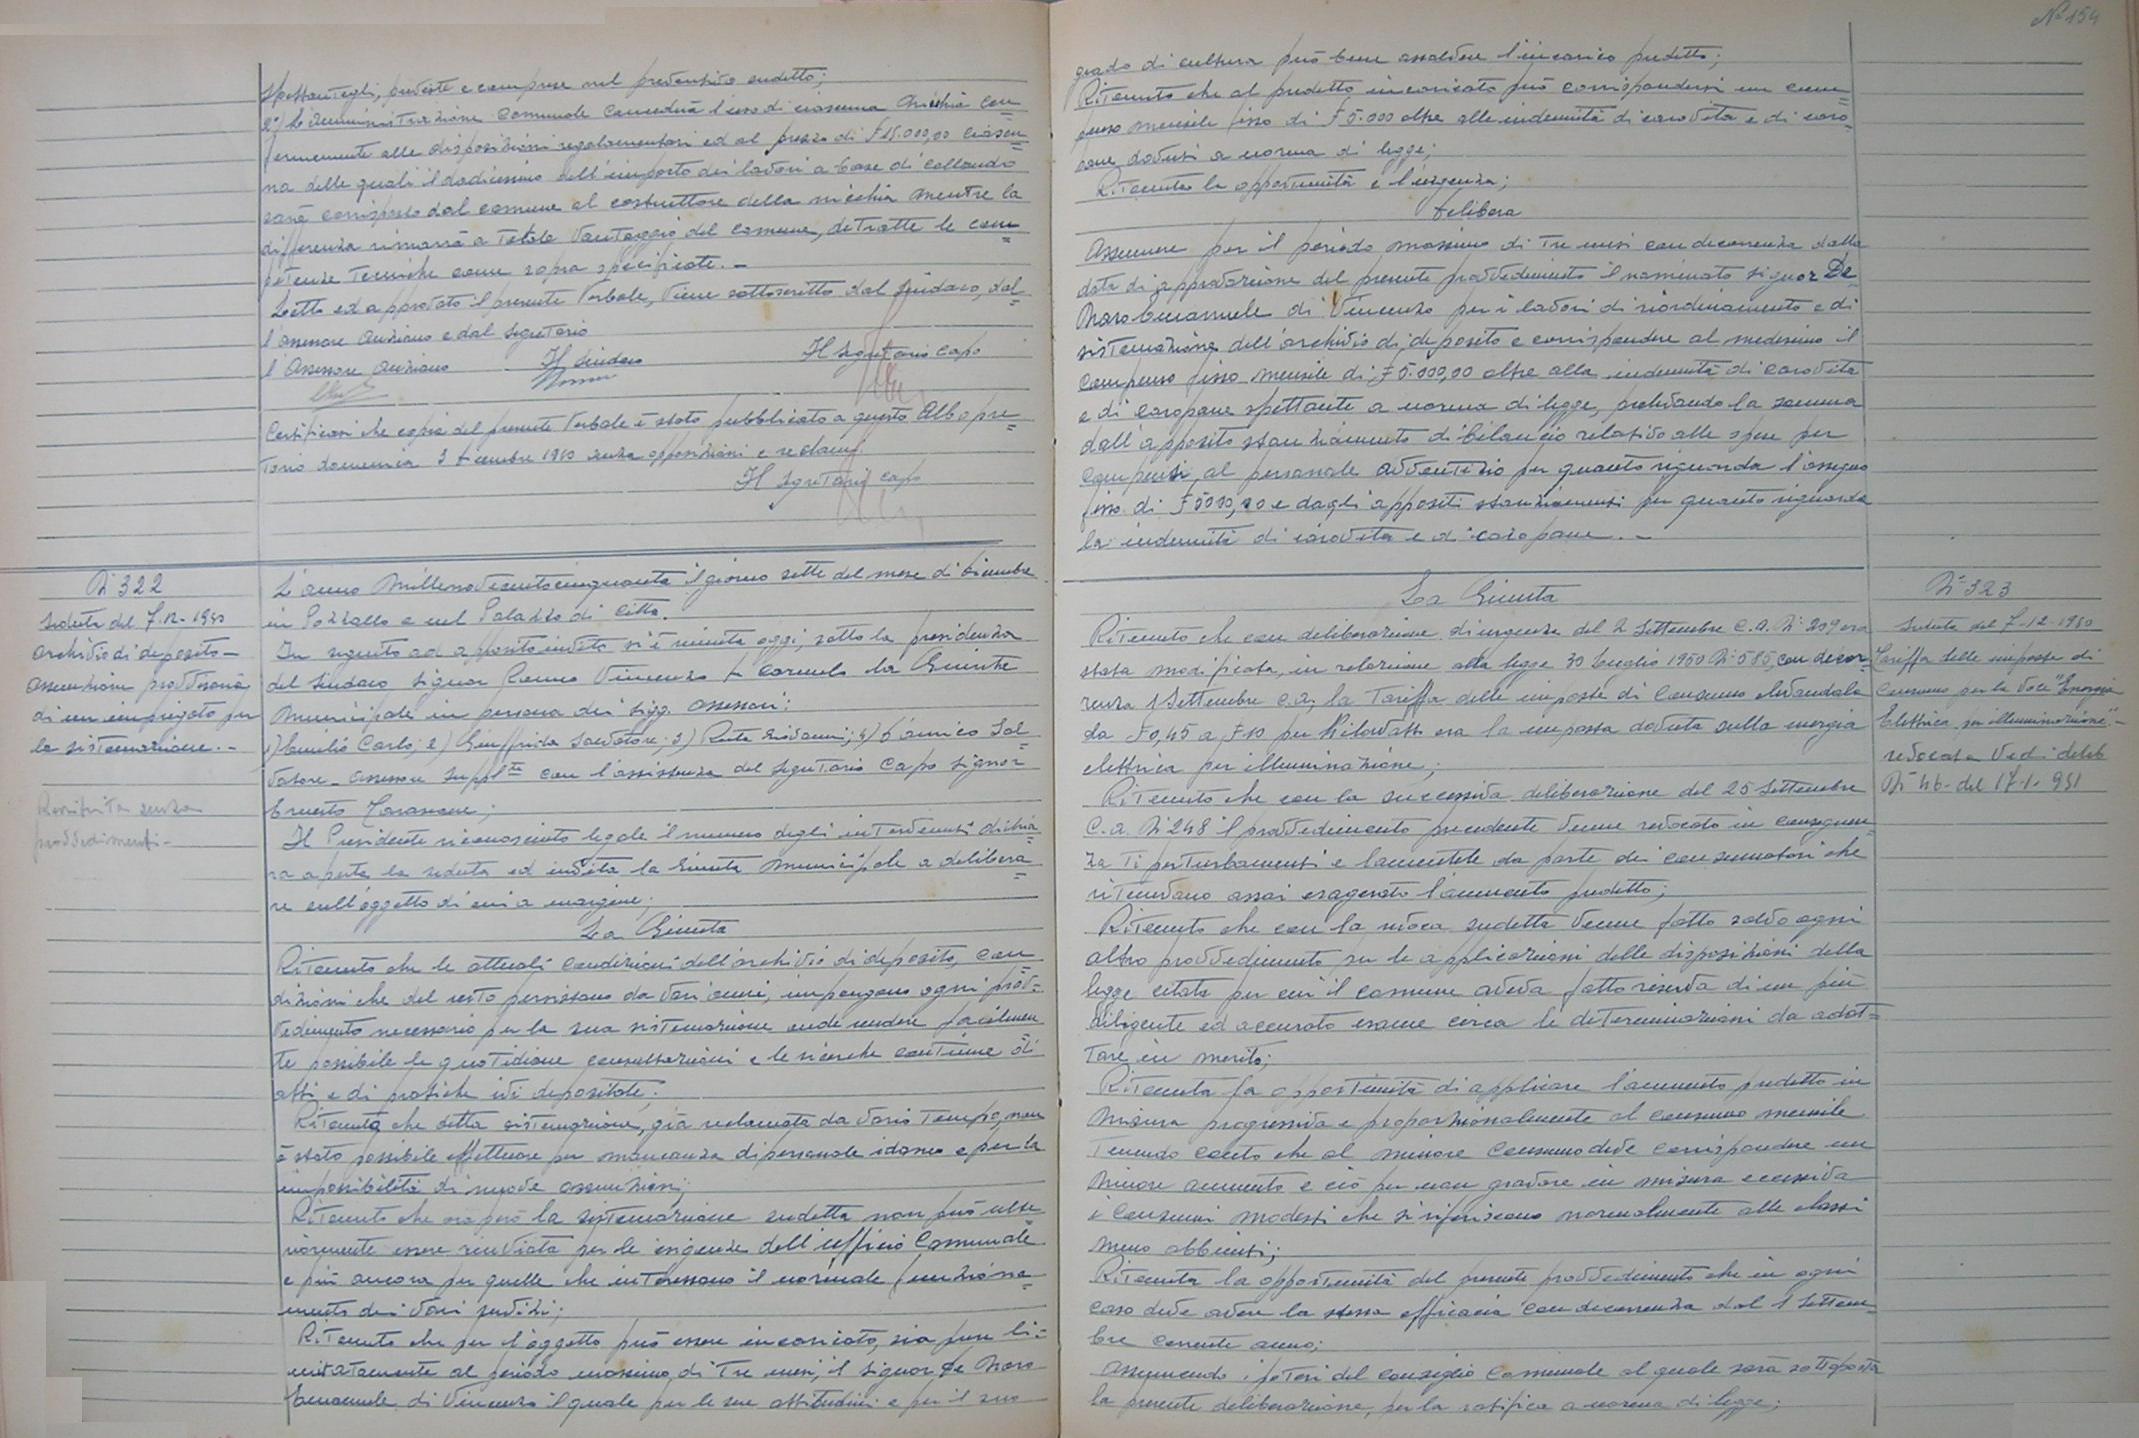 spettantegli, previste e comprese nel preventivo sudetto;
2°) L'Amministrazione Comunale concederà l'uso di ciascuna Nicchia con=
formemente alle disposizioni regolamentari ed al prezzo di £ 15.000,00 ciascu=
na delle quali il dodicesimo dell'importo dei lavori a base di collaudo
sarà corrisposto dal comune al costruttore della nicchia mentre la
differenza rimarrà a totale vantaggio del comune, detratte le com=
petenze tecniche come sopra specificate. -
Letto ed approvato il presente Verbale, viene sottoscritto dal Sindaco, dal=
l'assessore anziano e dal segretario
l'Assessore anziano Il Sindaco Il Segretario capo
Certificasi che copia del presente Verbale è stato pubblicato a questo Albo pre=
torio domenica 3 dicembre 1950 senza opposizioni e reclami.
Il Segretario capo
N 322
Seduta del 7-12-1950
Archivio di deposito -
Assunzione provvisoria
di un impiegato per
la sistemazione. -
Restituita senza
provvedimenti -
L'anno Millenovecentocinquanta il giorno sette del mese di Dicembre
in Pozzallo e nel Palazzo di Città.
In seguito ad apposito invito si è riunita oggi, sotto la presidenza
del Sindaco Signor Vincenzo fu Carmelo la Giunta
Municipale in persona dei Sigg. Assessori:
1) Emilio Carlo; 2) Giuffrida Salvatore; 3) Ruta Giovanni; 4) D'Amico Sal=
vatore - Assessore Suppl.te con l'assistenza del Segretario Capo Signor
Ernesto
Il Presidente riconosciuto legale il numero degli intervenuti dichia=
ra aperta la seduta ed invita la Giunta Municipale a delibera=
re sull'oggetto di cui a margine;
La Giunta
Ritenuto che le attuali condizioni dell'archivio di deposito, con
dizioni che del resto persistono da vari anni, impongono ogni prov=
vedimento necessario per la sua sistemazione onde rendere facilmen
te possibile le quotidiane consultazioni e le ricerche continue di
atti e di pratiche ivi depositate;
Ritenuta che detta sistemazione, già reclamata da vario tempo, non
è stato possibile effettuare per mancanza di personale idoneo e per la
impossibilità di nuove assunzioni;
Ritenuto che ora però la sistemazione sudetta non può ulte
riormente essere rinviata per le esigenze dell'ufficio Comunale
e più ancora per quelle che interessano il normale funziona=
mento dei vari servizi;
Ritenuto che per l'oggetto può essere incaricato, sia pure li=
mitatamente al periodo massimo di tre mesi, il signor De Naro
Emanuele di Vincenzo il quale per le sue attitudini e per il suo
N° 154
grado di cultura può bene assolvere l'incarico predetto;
Ritenuto che al predetto incaricato può corrispondersi un com=
penso mensile fisso di £ 5.000 oltre alle indennità di carovita e di caro=
pane dovuti a norma di legge;
Ritenuta la opportunità e l'urgenza;
Delibera
Assumere per il periodo massimo di tre mesi con decorrenza dalla
data di approvazione del presente provvedimento il nominato signor De
Naro Emanuele di Vincenzo per i lavori di riordinamento e di
sistemazione dell'archivio di deposito e corrispondere al medesimo il
compenso fisso mensile di £ 5.000,00 oltre alla indennità di carovita
e di caropane spettante a norma di legge, prelevando la somma
dall'apposito stanziamento di bilancio relativo alle spese per
compensi al personale avventizio per quanto riguarda l'assegno
fisso di £ 5000,00 e dagli appositi stanziamenti per quanto riguarda
la indennità di carovita e di caropane. -
La Giunta
Ritenuto che con deliberazione di urgenza del 2 Settembre c.a. N° 209 era
stata modificata, in relazione alla legge 30 Luglio 1950 N° 585, con decor=
renza 1 Settembre c.a., la Tariffa delle imposte di Consumo elevandola
da £ 0,45 a £ 10 per Kilowatt ora la imposta dovuta sulla energia
elettrica per illuminazione;
Ritenuto che con la successiva deliberazione del 25 Settembre
c.a. N° 248 il provvedimento precedente venne revocato in conseguen=
za di perturbamenti e lamentele da parte dei consumatori che
ritenevano assai esagerato l'aumento predetto;
Ritenuto che con la revoca sudetta venne fatto salvo ogni
altro provvedimento su le applicazioni delle disposizioni della
legge citata per cui il comune aveva fatto riserva di un più
diligente ed accurato esame circa le determinazioni da adot=
tare in merito;
Ritenuta la opportunità di applicare l'aumento predetto in
misura progressiva e proporzionalmente al consumo mensile
tenendo conto che al minore consumo deve corrispondere un
minore aumento e ciò per non gravare in misura eccessiva
i consumi modesti che si riferiscono normalmente alle classi
meno abbienti;
Ritenuta la opportunità del presente provvedimento che in ogni
caso deve avere la stessa efficacia con decorrenza dal 1 Settem=
bre corrente anno;
Assumendo i poteri del consiglio Comunale al quale sarà sottoposta
la presente deliberazione, per la ratifica a norma di legge;
N° 323
Seduta del 7-12-1950
Tariffa delle imposte di
Consumo per la voce "Energia
Elettrica per illuminazione" -
revocata Vedi delib
N° 46 - del 17-1-951